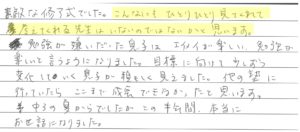 素敵な修了式でした。こんなにも ひとりひとり 見てくれて
考えてくれる先生は いないのではないかと 思います。
勉強が 嫌いだった息子は エイメイが楽しい、勉強が
楽しいと言うようになりました。目標に向けて 少しずつ
変化していく 息子が 頼もしく見えました。他の塾に
行っていたら ここまで 成長できたかな、と思います。
中3の夏からでしたが この半年間、本当に
お世話になりました。